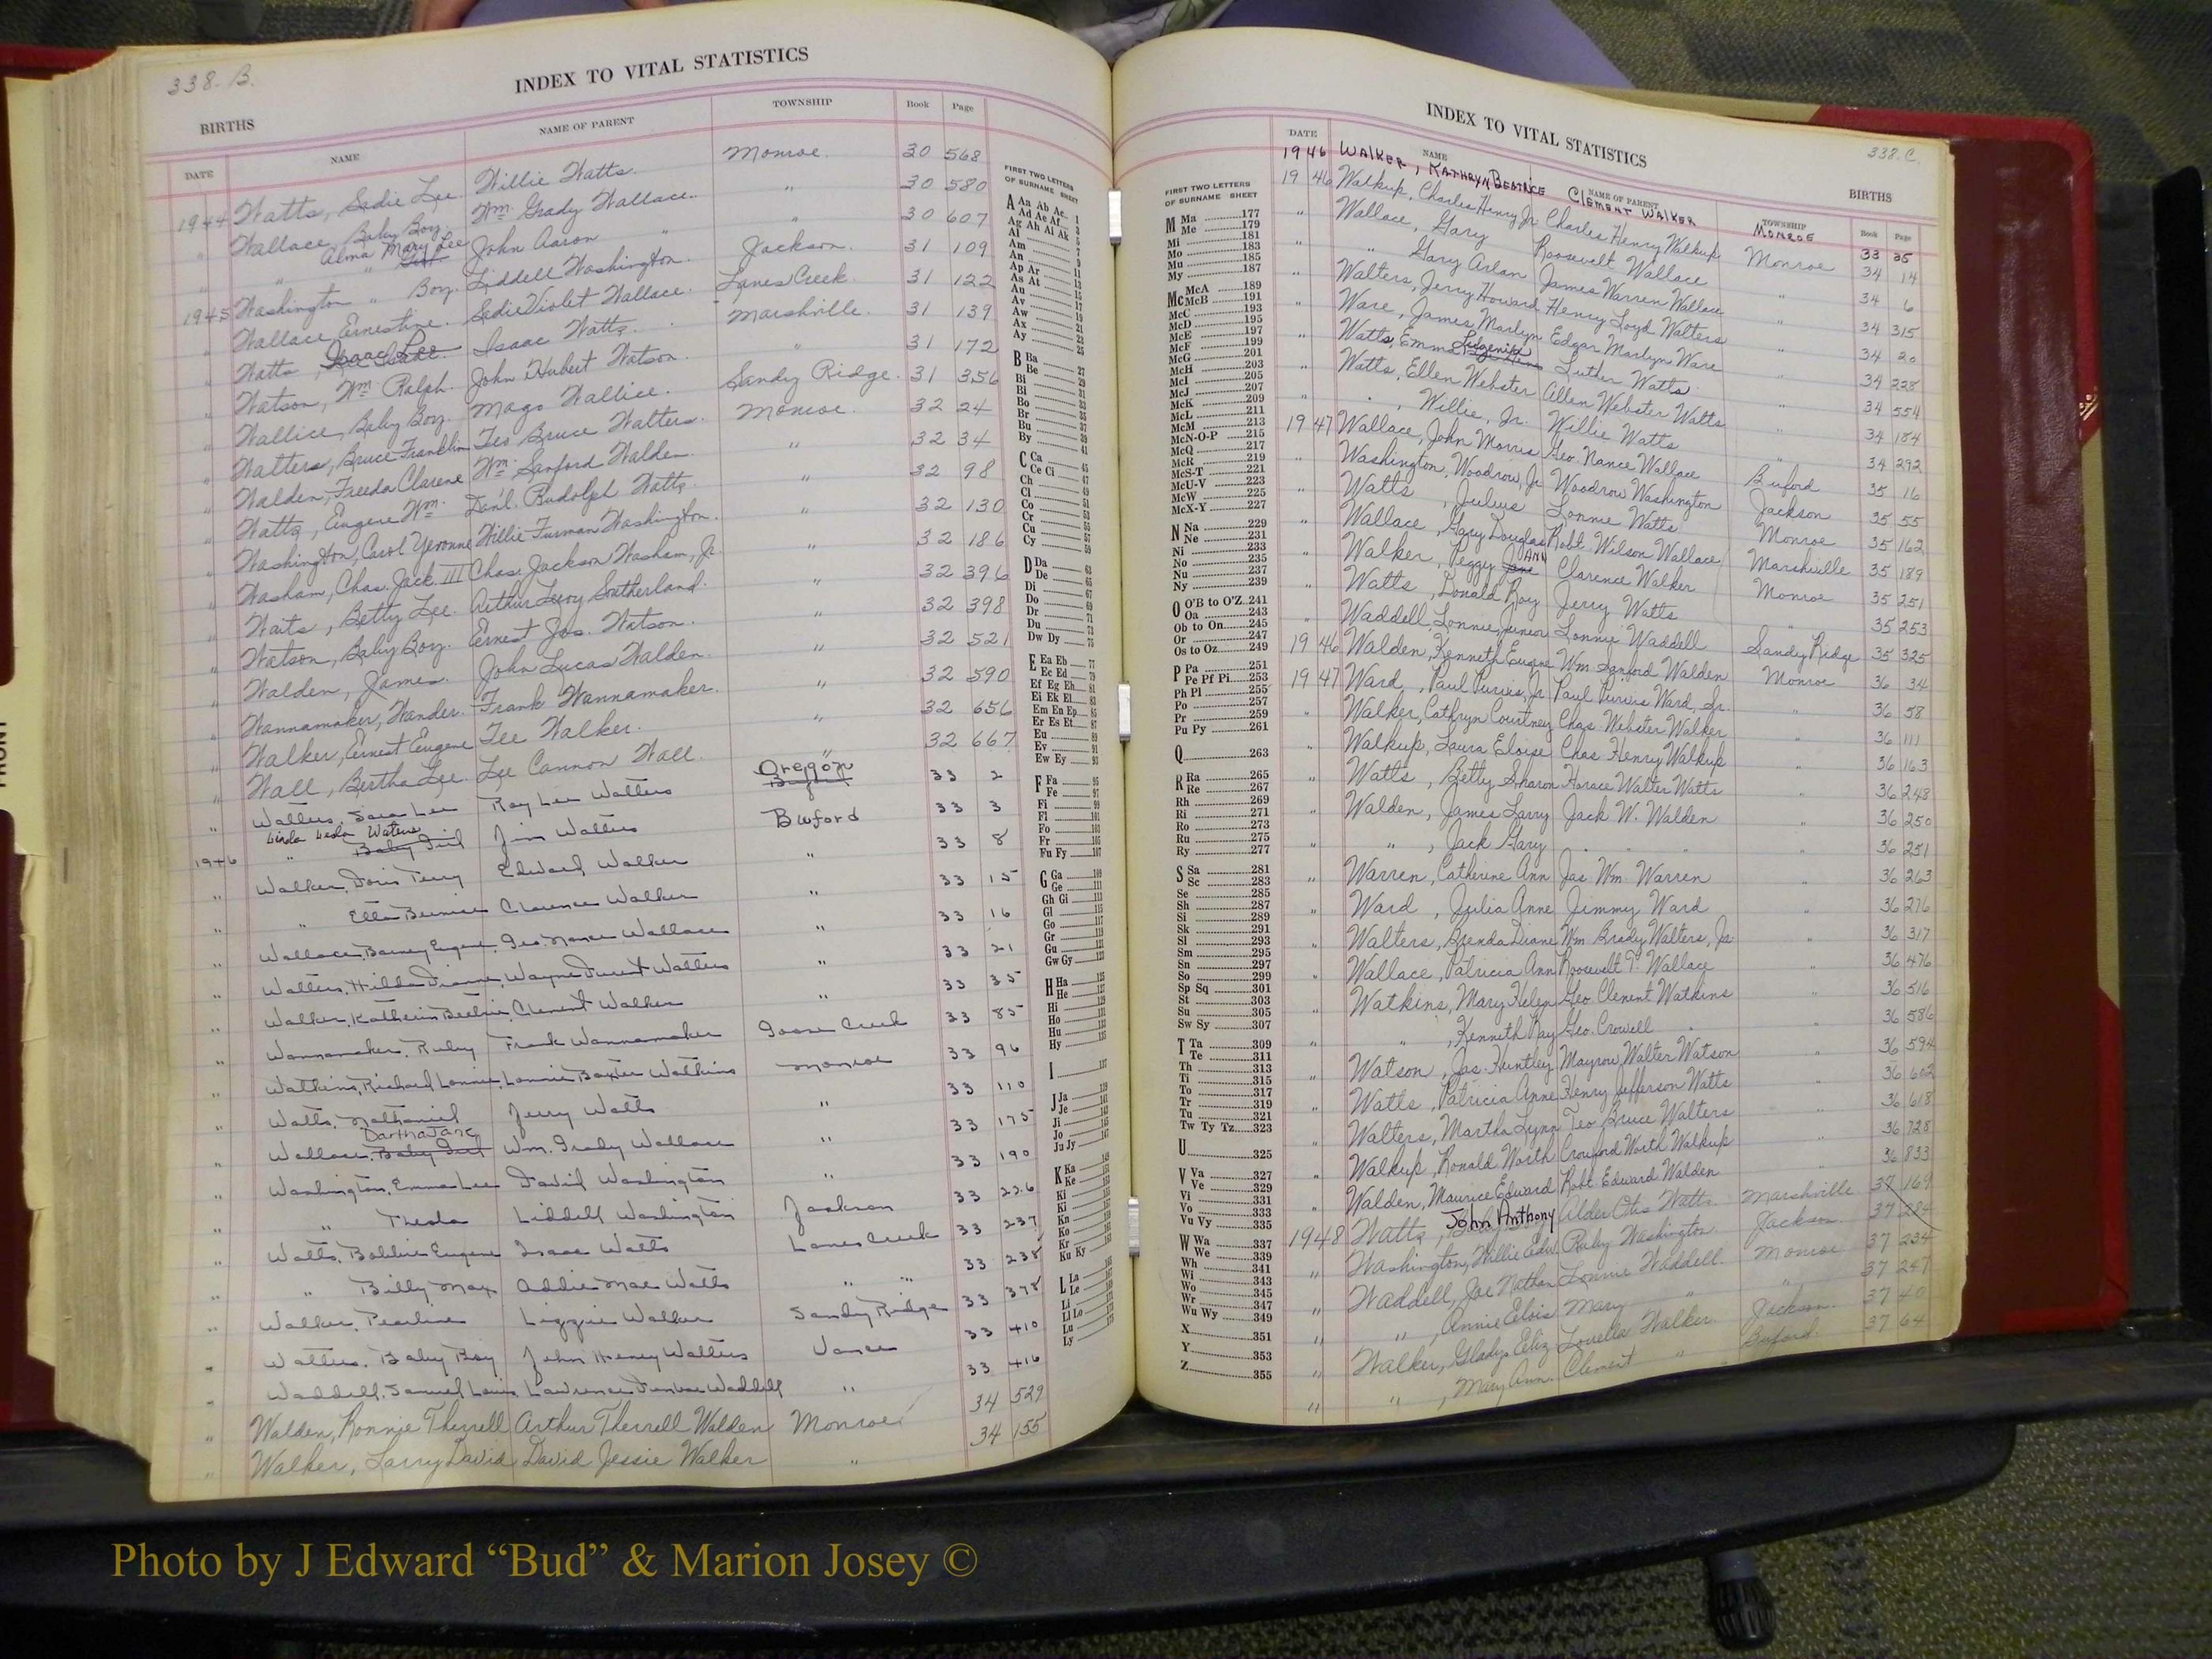 338-B.
INDEX TO VITAL STATISTICS
BIRTHS
DATE NAME NAME OF PARENT TOWNSHIP Book Page
1944 Watts, Sadie Lee Willie Watts. Monroe. 30 568
" Wallace, Baby Boy. Wm. Grady Wallace. " 30 580
" " Alma Mary Lee John Aaron " " 30 607
" Washington " Boy. Liddell Washington. Jackson. 31 109
1945 Wallace, Ernestine. Sadie Violet Wallace. Lanes Creek 31 122
" Watts, Isaac Lee Isaac Watts. Marshville. 31 139
" Watson, Wm. Ralph. John Hubert Watson. " 31 172
" Wallice, Baby Boy. Mago Wallice. Sandy Ridge. 31 356
" Walters, Bruce Franklin Teo Bruce Walters. Monroe. 32 24
" Walden, Freeda Clarene Wm. Sanford Walden " 32 34
" Watts, Eugene Wm. Dan'l. Rudolph Watts. " 32 98
" Washington, Carol Yevonne Willie Furman Washington. " 32 130
" Washam, Chas. Jack. III Chas. Jackson Washam, Jr. " 32 186
" Waits, Betty Lee. Arthur Leroy Sutherland. " 32 396
" Watson, Baby Boy. Ernest Jos. Watson. " 32 398
" Walden, James. John Lucas Walden. " 32 521
" Wannamaker, Wander. Frank Wannamaker. " 32 590
" Walker, Ernest Eugene Tee Walker. " 32 656
" Wall, Bertha Lee. Lee Cannon Wall. " 32 667
" Walters, Sara Lee Ray Lee Walters Oregon 33 2
1946 " Linda Leola Waters Baby Girl Jim Walters Buford 33 3
" Walker, Doris Terry Edward Walker " 33 8
" " Etta Bernice Clarence Walker " 33 15
" Wallace, Barney Eugene, Geo. Nance Wallace " 33 16
" Walters, Hilda Dianne, Wayne Walters " 33 21
" Walker, Clement Walker " 33 35
" Wannamaker, Ruby Frank Wannamaker Goose Creek 33 85
" Watkins, Richard Lonnie, Lonnie Baxter Watkins Monroe 33 96
" Watts, Nathaniel Jerry Watts " 33 110
" Wallace, Baby Girl Wm. Grady Wallace " 33 175
" Washington, Emma Lee David Washington " 33 190
" " Theola Liddell Washington Jackson 33 226
" Watts, Bobbie Eugene Isaac Watts Lanes Creek 33 237
" " Billy Max Addie Mae Watts " " 33 238
" Walker, Pearline Lizzie Walker Sandy Ridge 33 378
" Walters, Baby Boy John Henry Walters Vance 33 410
" Waddell, Samuel Louis Lawrence Dunbar Waddell " 33 416
" Walden, Ronnie Therrell Arthur Therrell Walden Monroe 34 529
" Walker, Larry David David Jessie Walker " 34 155
FIRST TWO LETTERS
OF SURNAME SHEET
A Aa Ab Ac 1
Ad Ae Af 3
Ag Ah Ai Ak 5
Al 7
Am 9
An 11
Ap Ar 13
As At 15
Au 17
Av 19
Aw 21
Ax 23
Ay 25
B Ba 27
Be 29
Bi 31
Bl 33
Bo 35
Br 37
Bu 39
By 41
C Ca 45
Ce Ci 47
Ch 49
Cl 51
Co 53
Cr 55
Cu 57
Cy 59
D Da 63
De 65
Di 67
Do 69
Dr 71
Du 73
Dw Dy 75
E Ea Eb 77
Ec Ed 79
Ef Eg Eh 81
Ei Ek El 83
Em En Ep 85
Er Es Et 87
Eu 89
Ev 91
Ew Ey 93
F Fa 95
Fe 97
Fi 99
Fl 101
Fo 103
Fr 105
Fu Fy 107
G Ga 109
Ge 111
Gh Gi 113
Gl 115
Go 117
Gr 119
Gu 121
Gw Gy 123
H Ha 125
He 127
Hi
Ho
Hu
Hy
I 137
J Ja
Je
Ji
Jo
Ju Jy
K Ka
Ke
Ki
Kl
Kn
Ko
Kr
Ku Ky
L La
Le
Li
Ll Lo
Lu
Ly
INDEX TO VITAL STATISTICS
338.C.
BIRTHS
FIRST TWO LETTERS
OF SURNAME SHEET
M Ma 177
Me 179
Mi 181
Mo 183
Mu 185
My 187
Mc McA 189
McB 191
McC 193
McD 195
McE 197
McF 199
McG 201
McH 203
McI 205
McJ 207
McK 209
McL 211
McM 213
McN-O-P 215
McQ 217
McR 219
McS-T 221
McU-V 223
McW 225
McX-Y 227
N Na 229
Ne 231
Ni 233
No 235
Nu 237
Ny 239
O O'B to O'Z 241
Oa 243
Ob to On 245
Or 247
Os to Oz 249
P Pa 251
Pe Pf Pi 253
Ph Pl 255
Po 257
Pr 259
Pu Py 261
Q 263
R Ra 265
Re 267
Rh 269
Ri 271
Ro 273
Ru 275
Ry 277
S Sa 281
Sc 283
Se 285
Sh 287
Si 289
Sk 291
Sl 293
Sm 295
Sn 297
So 299
Sp Sq 301
St 303
Su 305
Sw Sy 307
T Ta 309
Te 311
Th 313
Ti 315
To 317
Tr 319
Tu 321
Tw Ty Tz 323
U 325
V Va 327
Ve 329
Vi 331
Vo 333
Vu Vy 335
W Wa 337
We 339
Wh 341
Wi 343
Wo 345
Wr 347
Wu Wy 349
X 351
Y 353
Z 355
DATE NAME NAME OF PARENT TOWNSHIP Book Page
1946 WALKER, KATHRYN BEATRICE CLEMENT WALKER MONROE 33 35
1946 Walkup, Charles Henry Jr. Charles Henry Walkup Monroe 34 14
" Wallace, Gary Roosevelt Wallace " 34 6
" " Gary Arlan James Warren Wallace " 34 315
" Walters, Jerry Howard Henry Loyd Walters " 34 20
" Ware, James Marlyn Edgar Marlyn Ware " 34 228
" Watts, Emma Luther Watts " 34 554
" Watts, Ellen Webster Allen Webster Watts " 34 184
" " , Willie, Jr. Willie Watts " 34 292
1947 Wallace, John Morris Geo. Nance Wallace Buford 35 16
" Washington, Woodrow, Jr Woodrow Washington Jackson 35 55
" Watts, Julius Lonnie Watts Monroe 35 162
" Wallace, Gary Douglas Robt. Wilson Wallace Marshville 35 189
" Walker, Peggy ANN Clarence Walker Monroe 35 251
" Watts, Donald Roy Jerry Watts " 35 253
" Waddell, Lonnie, Junior Lonnie Waddell Sandy Ridge 35 325
1946 Walden, Kenneth Eugene Wm. Sanford Walden Monroe 36 34
1947 Ward, Paul Purvis, Jr. Paul Purvis Ward, Sr. " 36 58
" Walker, Cathryn Courtney Chas. Webster Walker " 36 111
" Walkup, Laura Eloise Chas Henry Walkup " 36 163
" Watts, Betty Sharon Horace Walter Watts " 36 248
" Walden, James Larry Jack W. Walden " 36 250
" " , Jack Gary " " " 36 251
" Warren, Catherine Ann Jas. Wm. Warren " 36 263
" Ward, Julia Anne Jimmy Ward " 36 276
" Walters, Brenda Diane Wm Brady Walters, Jr. " 36 317
" Wallace, Patricia Ann Roosevelt T. Wallace " 36 476
" Watkins, Mary Helen Geo. Clement Watkins " 36 516
" " , Kenneth Ray Geo. Crowell " " 36 586
" Watson, Jas. Huntley Mayrow Walter Watson " 36 594
" Watts, Patricia Anne Henry Jefferson Watts " 36 602
" Walters, Martha Lynn Teo Bruce Walters " 36 618
" Walkup, Ronald Worth Crowford Worth Walkup " 36 728
" Walden, Maurice Edward Robt. Edward Walden " 36 833
1948 Watts, John Anthony Alder Otis Watts Marshville 37 169
" Washington, Willie Edw. Ruby Washington. Jackson 37
" Waddell, Joe Nathan Lonnie Waddell. Monroe 37 234
" " , Annie Elois Mary " " 37 247
" Walker, Gladys Eliz Louella Walker Jackson. 37 40
" " , Mary Ann. Clement " Buford. 37 64
Photo by J Edward “Bud” & Marion Josey ©